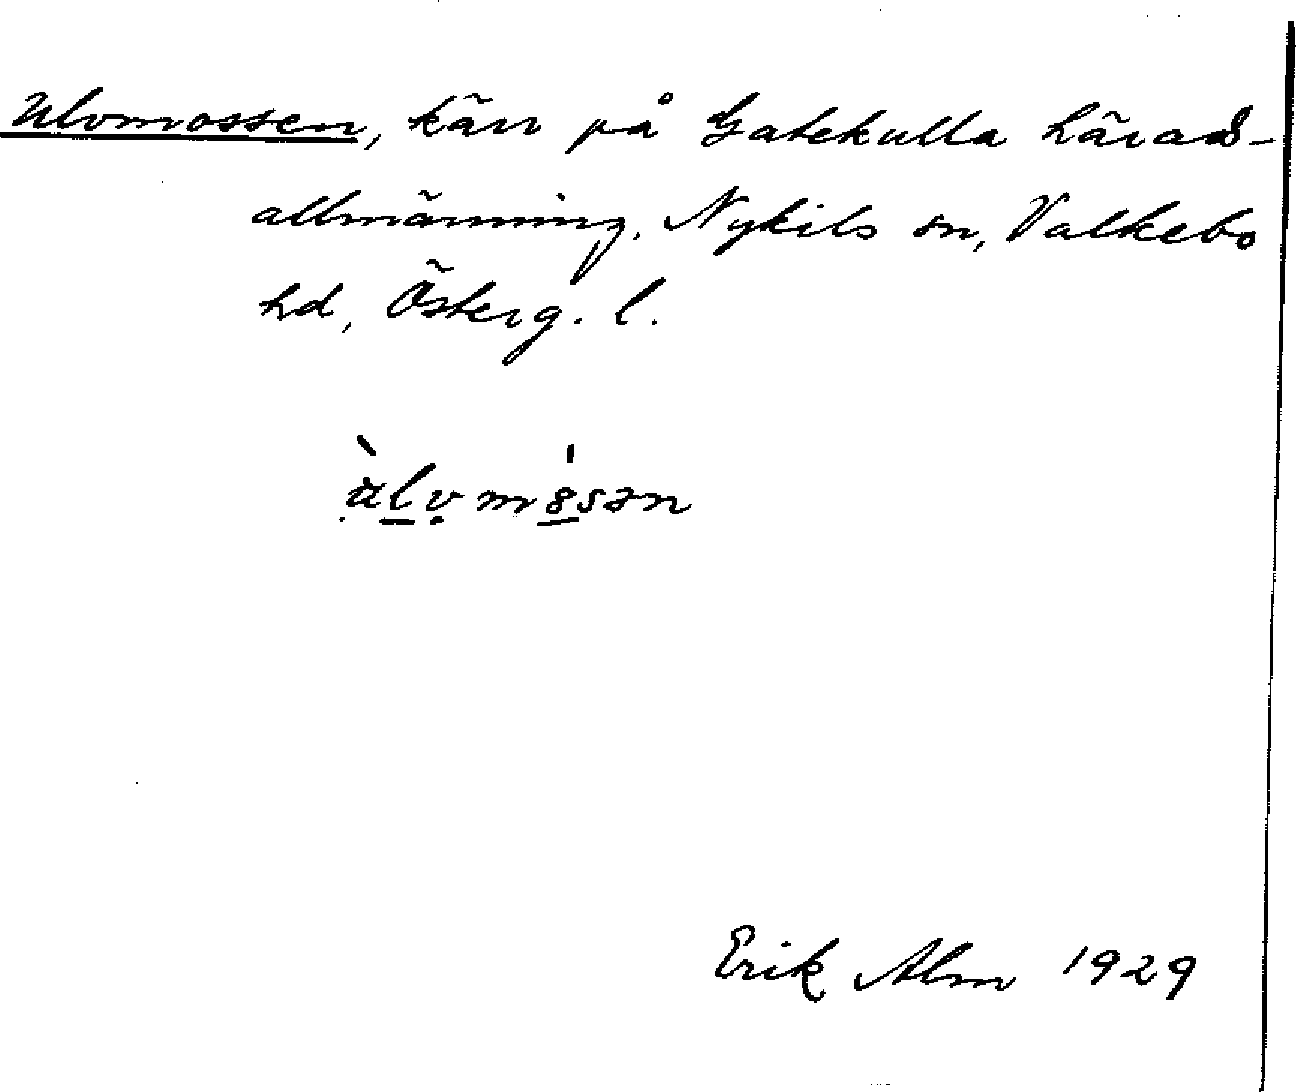 Ulvmossen, kärr på Gatekulla härads-
allmänning, Nykils sn, Valkebo
hd, Österg. l.
Erik Alm 1929